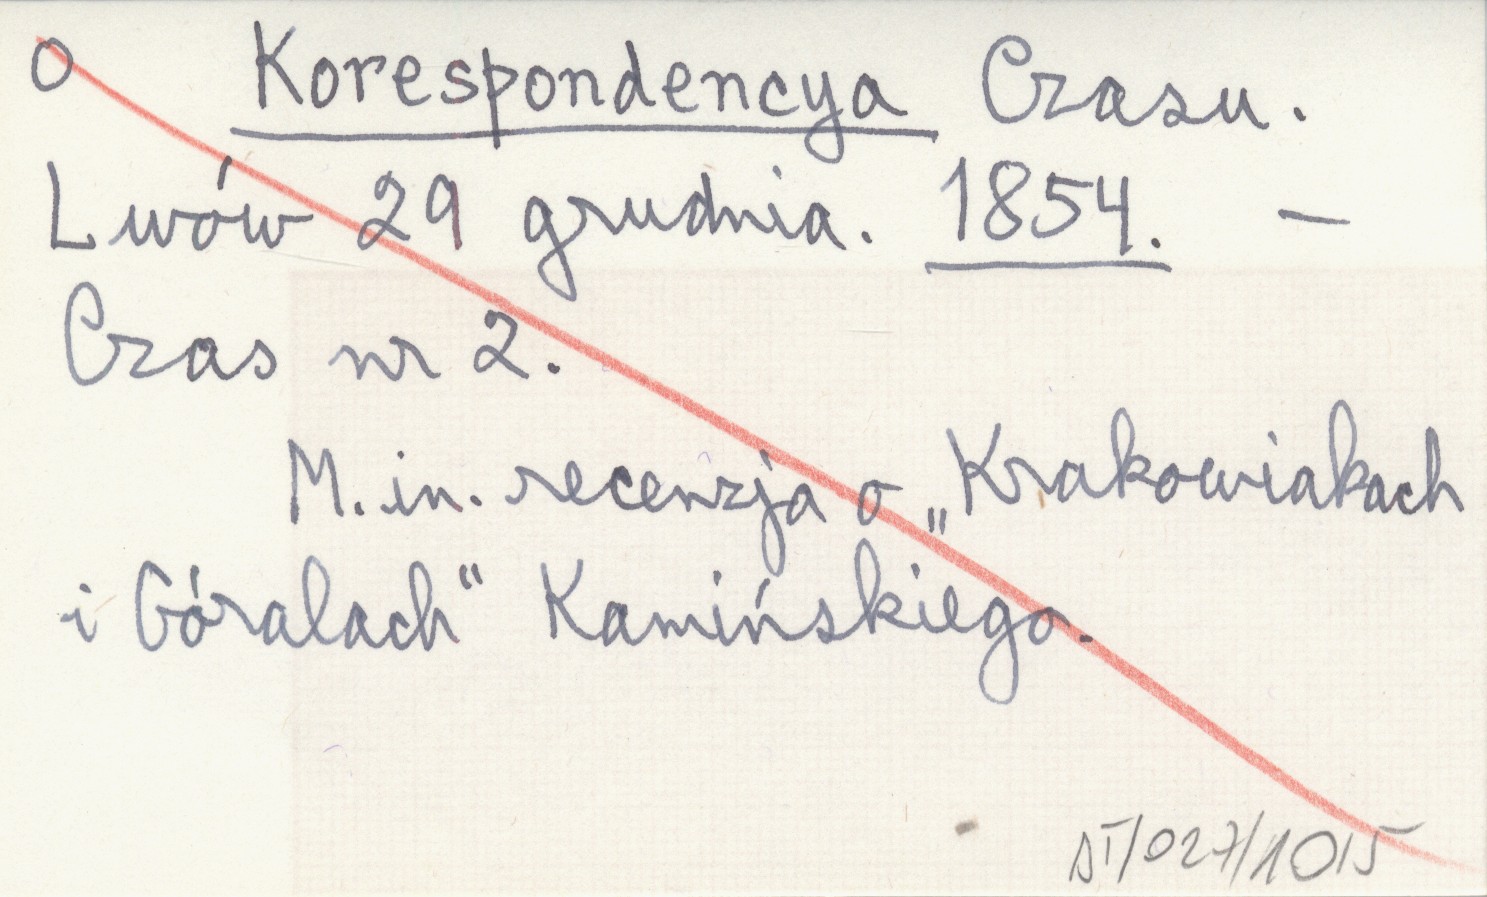 o Korespondencya Czasu.
Lwów 29 grudnia. 1854. —
Czas nr 2.
M. in. recenzja o „Krakowiakach
i Góralach" Kamińskiego.
DT/027/1015